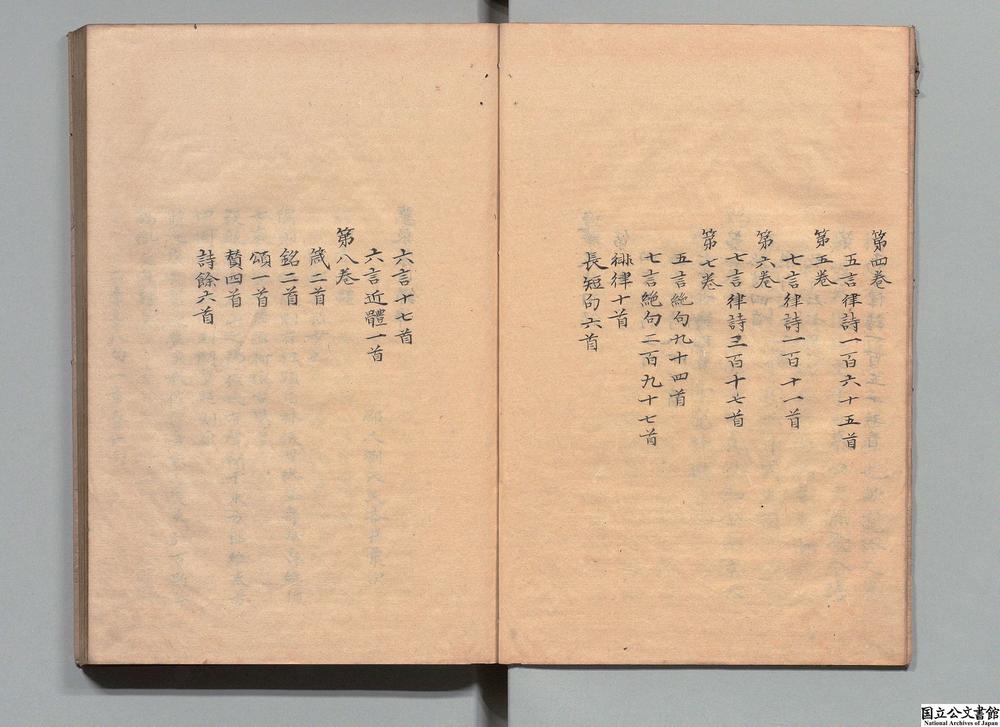 第四卷
五言律詩一百六十五首
第五卷
七言律詩一百十一首
第六卷
七言律詩三百十七首
第七卷
五言絶句九十四首
七言絶句二百九十七首
徘律十首
長短句六首
六言十七首
六言近體一首
第八卷
箴二首
銘二首
頌一首
贊四首
詩餘六首
国立公文書館
National Archives of Japan